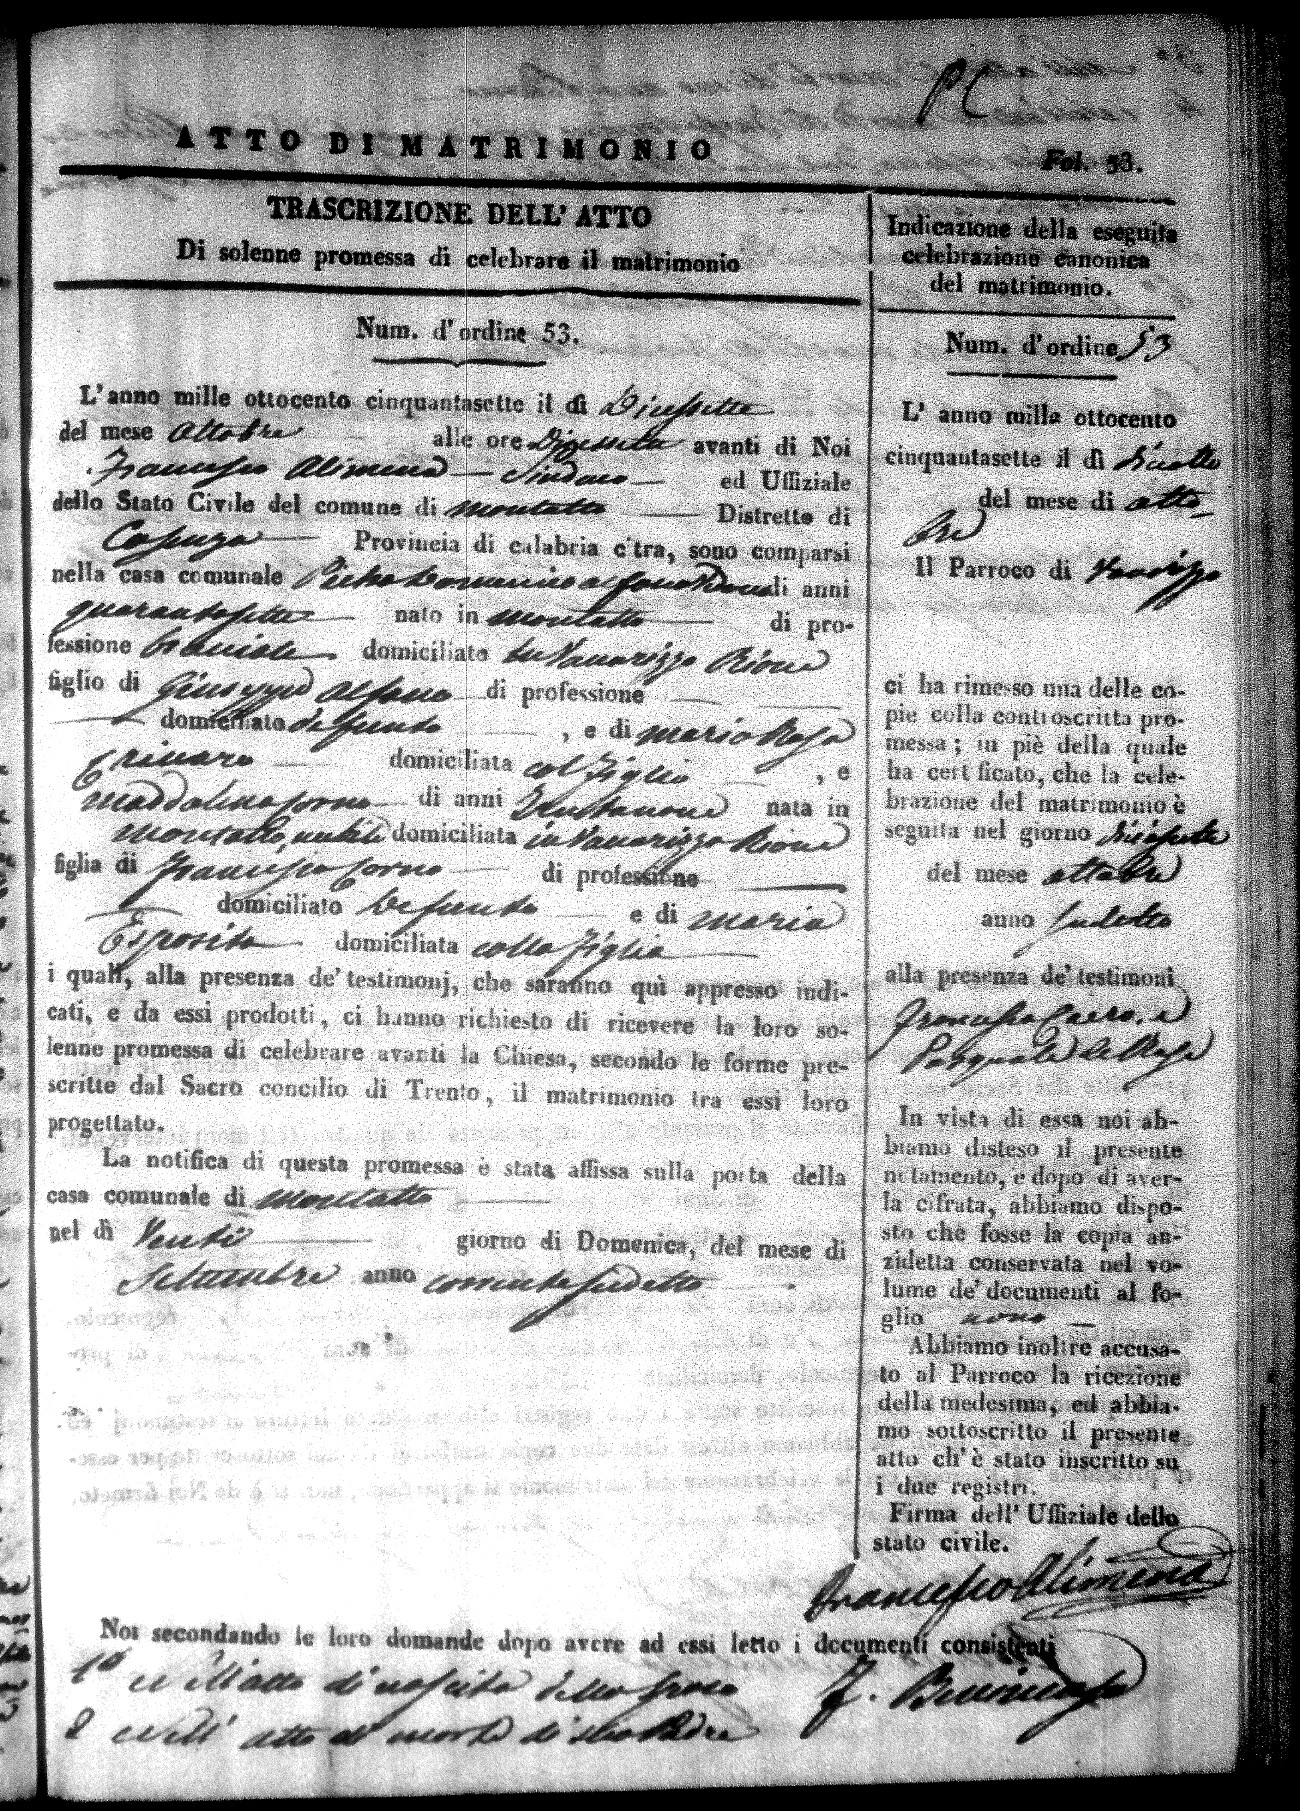 PC
ATTO DI MATRIMONIO
Fol. 53.
TRASCRIZIONE DELL' ATTO
Di solenne promessa di celebrare il matrimonio
Num. d'ordine 53.
L'anno mille ottocento cinquantasette il dì Diciessette
del mese Ottobre alle ore avanti di Noi
Francesco Alimena Sindaco ed Uffiziale
dello Stato Civile del comune di Montalto Distretto di
Cosenza Provincia di calabria citra, sono comparsi
nella casa comunale Pietro Domenico Alfano di anni
quarantasette nato in Montalto di pro-
fessione domiciliato in Vaccarizzo Rione
figlio di Giuseppe Alfano di professione
domiciliato defunto , e di Maria Rosa
domiciliata col figlio , e
Maddalena Corno di anni Trentanove nata in
Montalto, nubile domiciliata in Vaccarizzo Rione
figlia di Francesco Corno di professione
domiciliato Defunto e di Maria
Esposito domiciliata colla figlia
i quali, alla presenza de' testimonj, che saranno quì appresso indi-
cati, e da essi prodotti, ci hanno richiesto di ricevere la loro so-
lenne promessa di celebrare avanti la Chiesa, secondo le forme pre-
scritte dal Sacro concilio di Trento, il matrimonio tra essi loro
progettato.
La notifica di questa promessa è stata affissa sulla porta della
casa comunale di Montalto
nel dì Venti giorno di Domenica, del mese di
Settembre anno corrente sudetto
Noi secondando le loro domande dopo avere ad essi letto i documenti consistenti
1º nell'atto di nascita dello sposo
2 nell' atto di morte di suo Padre
Indicazione della eseguita
celebrazione canonica
del matrimonio.
Num. d'ordine 53
L' anno mille ottocento
cinquantasette il dì diciotto
del mese di otto-
bre
Il Parroco di Vaccarizzo
ci ha rimesso una delle co-
pie colla controscritta pro-
messa; in piè della quale
ha certificato, che la cele-
brazione del matrimonio è
seguita nel giorno diciassette
del mese ottobre
anno sudetto
alla presenza de' testimoni
Francesco e
Pasquale de Rose
In vista di essa noi ab-
biamo disteso il presente
notamento, e dopo di aver-
la cifrata, abbiamo dispo-
sto che fosse la copia an-
zidetta conservata nel vo-
lume de' documenti al fo-
glio nono
Abbiamo inoltre accusa-
to al Parroco la ricezione
della medesima, ed abbia-
mo sottoscritto il presente
atto ch'è stato inscritto su
i due registri.
Firma dell' Uffiziale dello
stato civile.
Francesco Alimena